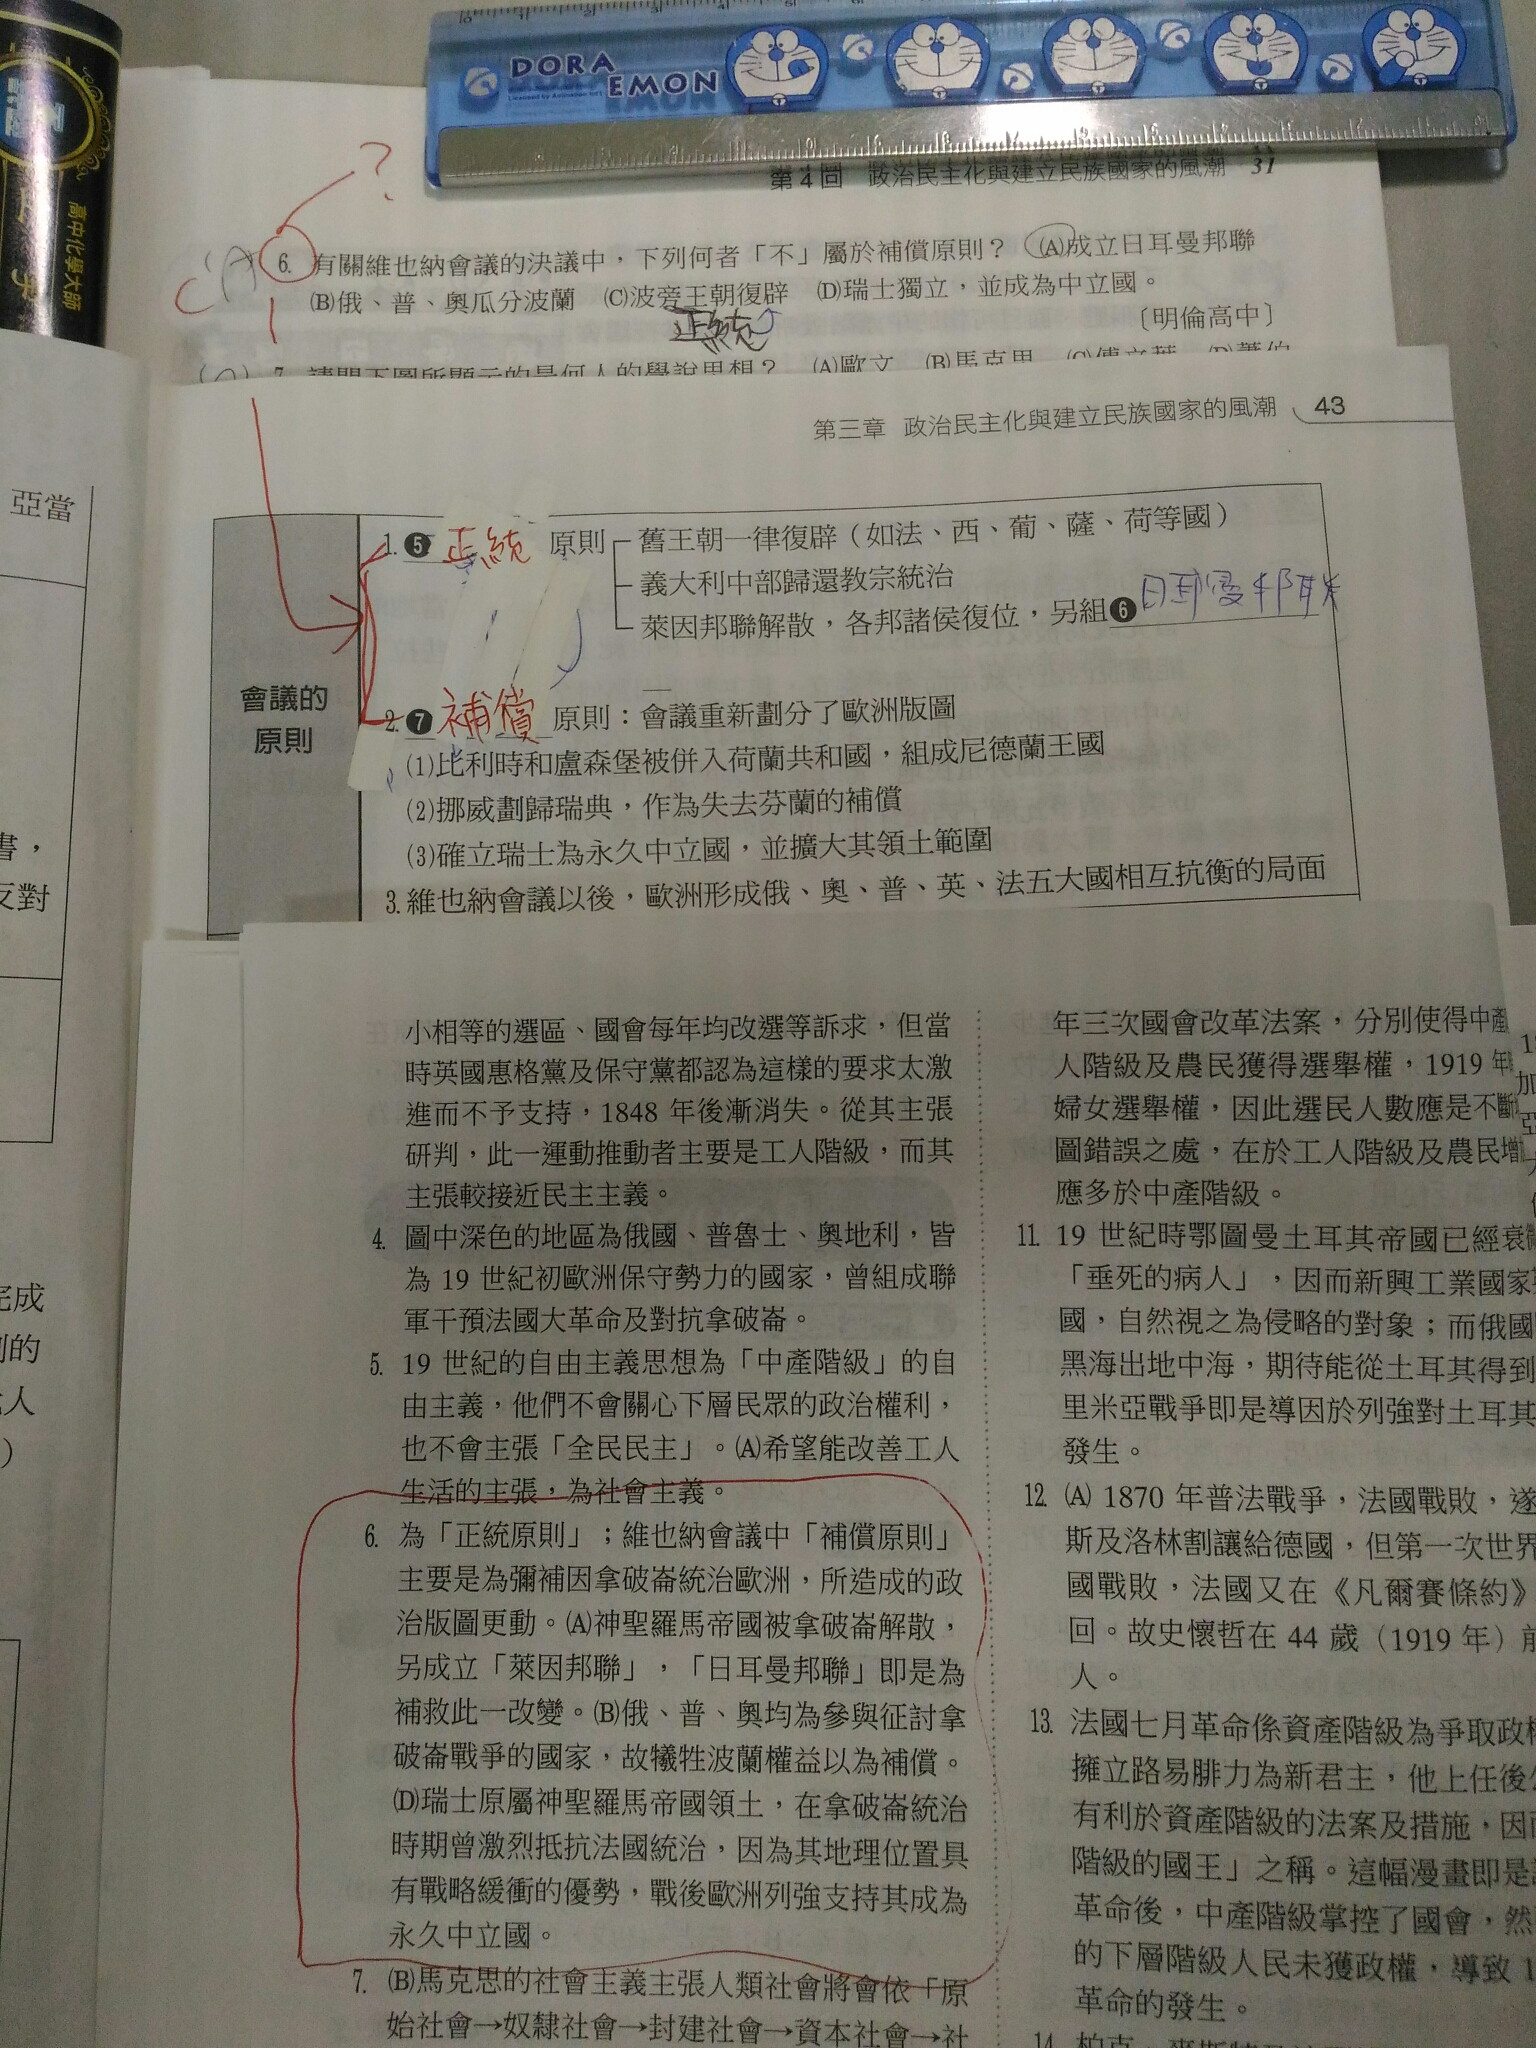 DORA
EMON
高中化學大師
第4回 政治民主化與建立民族國家的風潮 31
?
C (A) 6. 有關維也納會議的決議中，下列何者「不」屬於補償原則？ (A)成立日耳曼邦聯
(B)俄、普、奧瓜分波蘭 (C)波旁王朝復辟 (D)瑞士獨立，並成為中立國。
正統
〔明倫高中〕
第三章 政治民主化與建立民族國家的風潮 43
亞當
會議的
原則
1. ❺ 正統 原則
舊王朝一律復辟（如法、西、葡、薩、荷等國）
義大利中部歸還教宗統治
萊因邦聯解散，各邦諸侯復位，另組❻日耳曼邦聯
2. ❼ 補償 原則：會議重新劃分了歐洲版圖
(1)比利時和盧森堡被併入荷蘭共和國，組成尼德蘭王國
(2)挪威劃歸瑞典，作為失去芬蘭的補償
(3)確立瑞士為永久中立國，並擴大其領土範圍
3. 維也納會議以後，歐洲形成俄、奧、普、英、法五大國相互抗衡的局面
書，
反對
完成
的
人
）
小相等的選區、國會每年均改選等訴求，但當
時英國惠格黨及保守黨都認為這樣的要求太激
進而不予支持，1848 年後漸消失。從其主張
研判，此一運動推動者主要是工人階級，而其
主張較接近民主主義。
4. 圖中深色的地區為俄國、普魯士、奧地利，皆
為 19 世紀初歐洲保守勢力的國家，曾組成聯
軍干預法國大革命及對抗拿破崙。
5. 19 世紀的自由主義思想為「中產階級」的自
由主義，他們不會關心下層民眾的政治權利，
也不會主張「全民民主」。(A)希望能改善工人
生活的主張，為社會主義。
6. 為「正統原則」；維也納會議中「補償原則」
主要是為彌補因拿破崙統治歐洲，所造成的政
治版圖更動。(A)神聖羅馬帝國被拿破崙解散，
另成立「萊因邦聯」，「日耳曼邦聯」即是為
補救此一改變。(B)俄、普、奧均為參與征討拿
破崙戰爭的國家，故犧牲波蘭權益以為補償。
(D)瑞士原屬神聖羅馬帝國領土，在拿破崙統治
時期曾激烈抵抗法國統治，因為其地理位置具
有戰略緩衝的優勢，戰後歐洲列強支持其成為
永久中立國。
7. (B)馬克思的社會主義主張人類社會將會依「原
始社會→奴隸社會→封建社會→資本社會→社
年三次國會改革法案，分別使得中產
人階級及農民獲得選舉權，1919 年
婦女選舉權，因此選民人數應是不斷
圖錯誤之處，在於工人階級及農民增
應多於中產階級。
11. 19 世紀時鄂圖曼土耳其帝國已經衰
「垂死的病人」，因而新興工業國家
國，自然視之為侵略的對象；而俄國
黑海出地中海，期待能從土耳其得到
里米亞戰爭即是導因於列強對土耳其
發生。
12. (A) 1870 年普法戰爭，法國戰敗，遂
斯及洛林割讓給德國，但第一次世界
國戰敗，法國又在《凡爾賽條約》
回。故史懷哲在 44 歲（1919 年）前
人。
13. 法國七月革命係資產階級為爭取政權
擁立路易腓力為新君主，他上任後
有利於資產階級的法案及措施，因而
階級的國王」之稱。這幅漫畫即是
革命後，中產階級掌控了國會，然
的下層階級人民未獲政權，導致 1
革命的發生。